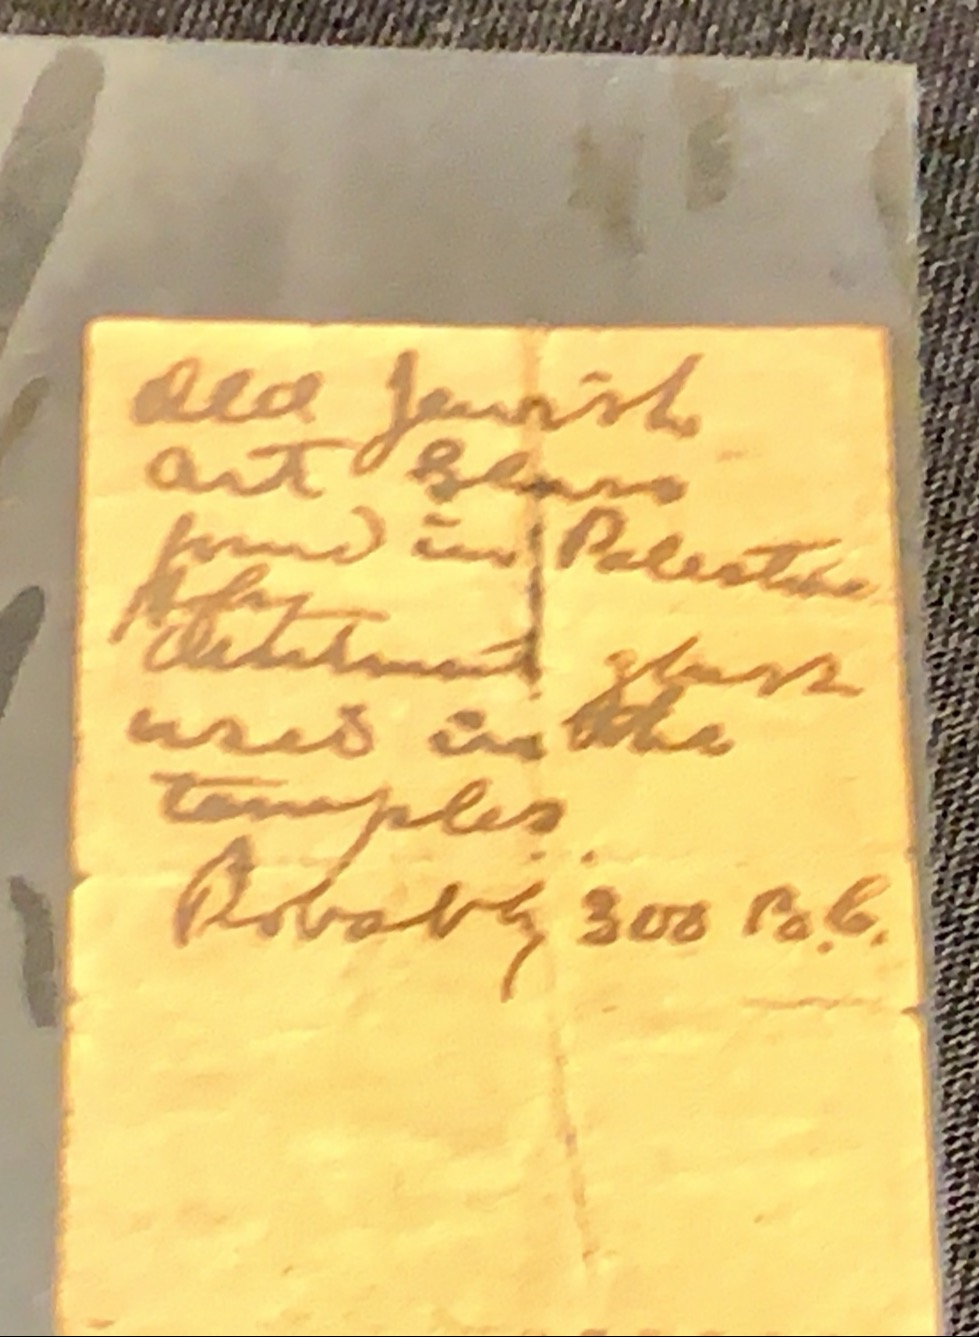 Old Jewish
art Glass
found in Palestine
glass
used in the
temples.
Probably 300 B.C.